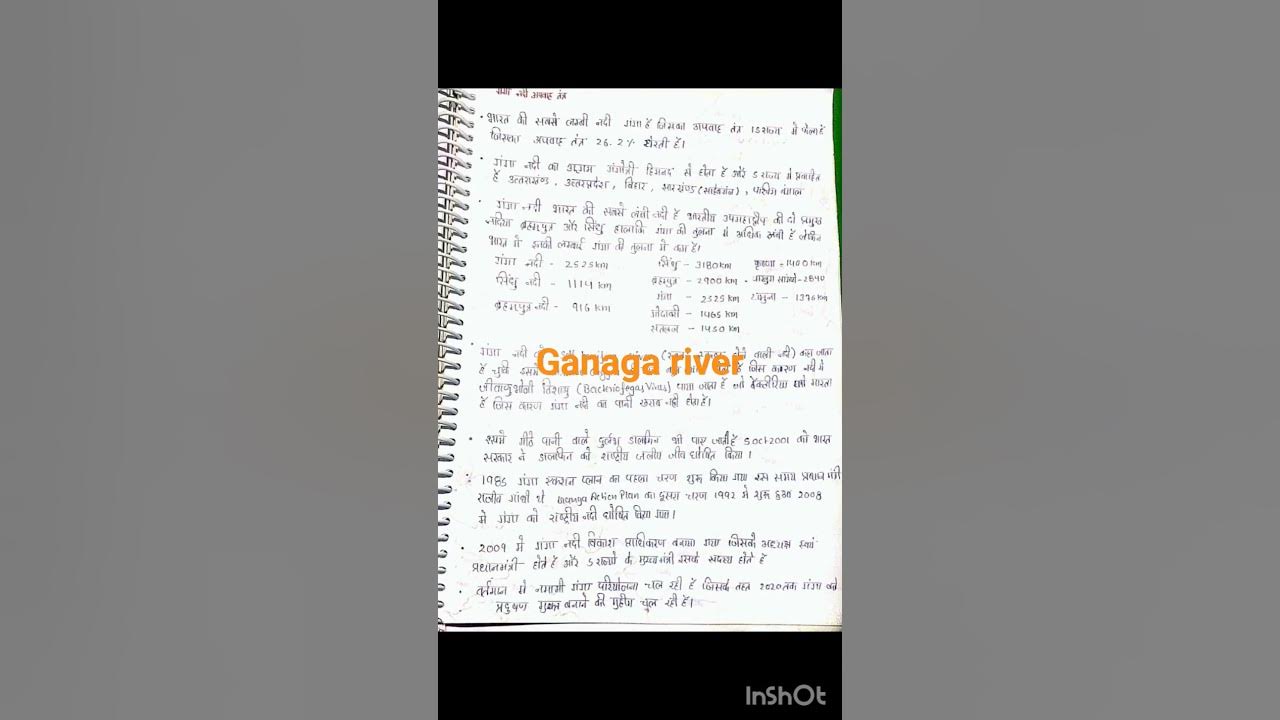 गंगा नदी अपवाह तंत्र
• भारत की सबसे लम्बी नदी गंगा है जिसका अपवाह तंत्र 15 राज्य में फैला है
जिसका अपवाह तंत्र 26.2% घेरती है।
• गंगा नदी का उद्गम गंगोत्री हिमनद से होता है और 5 राज्य में प्रवाहित
है उत्तराखण्ड, उत्तरप्रदेश, बिहार, झारखण्ड (साहेबगंज), पश्चिम बंगाल
• गंगा नदी भारत की सबसे लंबी नदी है भारतीय उपमहाद्वीप की दो प्रमुख
नदिया ब्रह्मपुत्र और सिंधु हालांकि गंगा की तुलना में अधिक लंबी है लेकिन
भारत में इनकी लम्बाई गंगा की तुलना में कम है।
गंगा नदी - 2525 km सिंधु - 3180 km कृष्णा - 1400 km
सिंधु नदी - 1114 km ब्रह्मपुत्र - 2900 km - 2840
ब्रह्मपुत्र नदी - 916 km गंगा - 2525 km यमुना - 1376 km
गोदावरी - 1465 km
सतलज - 1450 km
गंगा नदी होने वाली नदी) कहा जाता
Ganaga river
है चुकी इसमें है जिस कारण नदी में
जीवाणुभोजी विषाणु (Bacteriofegas Virus) पाया जाता है जो बैक्टीरिया को मारता
है जिस कारण गंगा नदी का पानी खराब नहीं होता है।
• इसमें मीठे पानी वाले दुर्लभ डालफिन भी पाए जाती है 5 Oct 2001 को भारत
सरकार ने डालफिन को राष्ट्रीय जलीय जीव घोषित किया।
• 1986 गंगा एक्शन प्लान का पहला चरण शुरू किया गया इस समय प्रधानमंत्री
राजीव गांधी थे Ganga Action Plan का दूसरा चरण 1992 में शुरू हुआ 2008
में गंगा को राष्ट्रीय नदी घोषित किया गया।
• 2009 में गंगा नदी विकास प्राधिकरण बनाया गया जिसके अध्यक्ष स्वयं
प्रधानमंत्री होते हैं और 5 राज्यो के मुख्यमंत्री इसके सदस्य होते हैं
• वर्तमान में नमामी गंगा परियोजना चल रही है जिसके तहत 2020 तक गंगा को
प्रदूषण मुक्त बनाने की मुहीम चल रही है।
InShOt